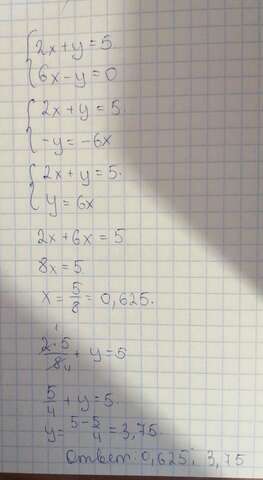 2x+y=5.
6x-y=0
2x+y=5.
-y=-6x
2x+y=5.
y=6x
2x+6x=5
8x=5
x=5/8=0,625.
2·5/8 + y=5
1 4
5/4+y=5.
y=5-5/4=3,75.
Ответ: 0,625; 3,75